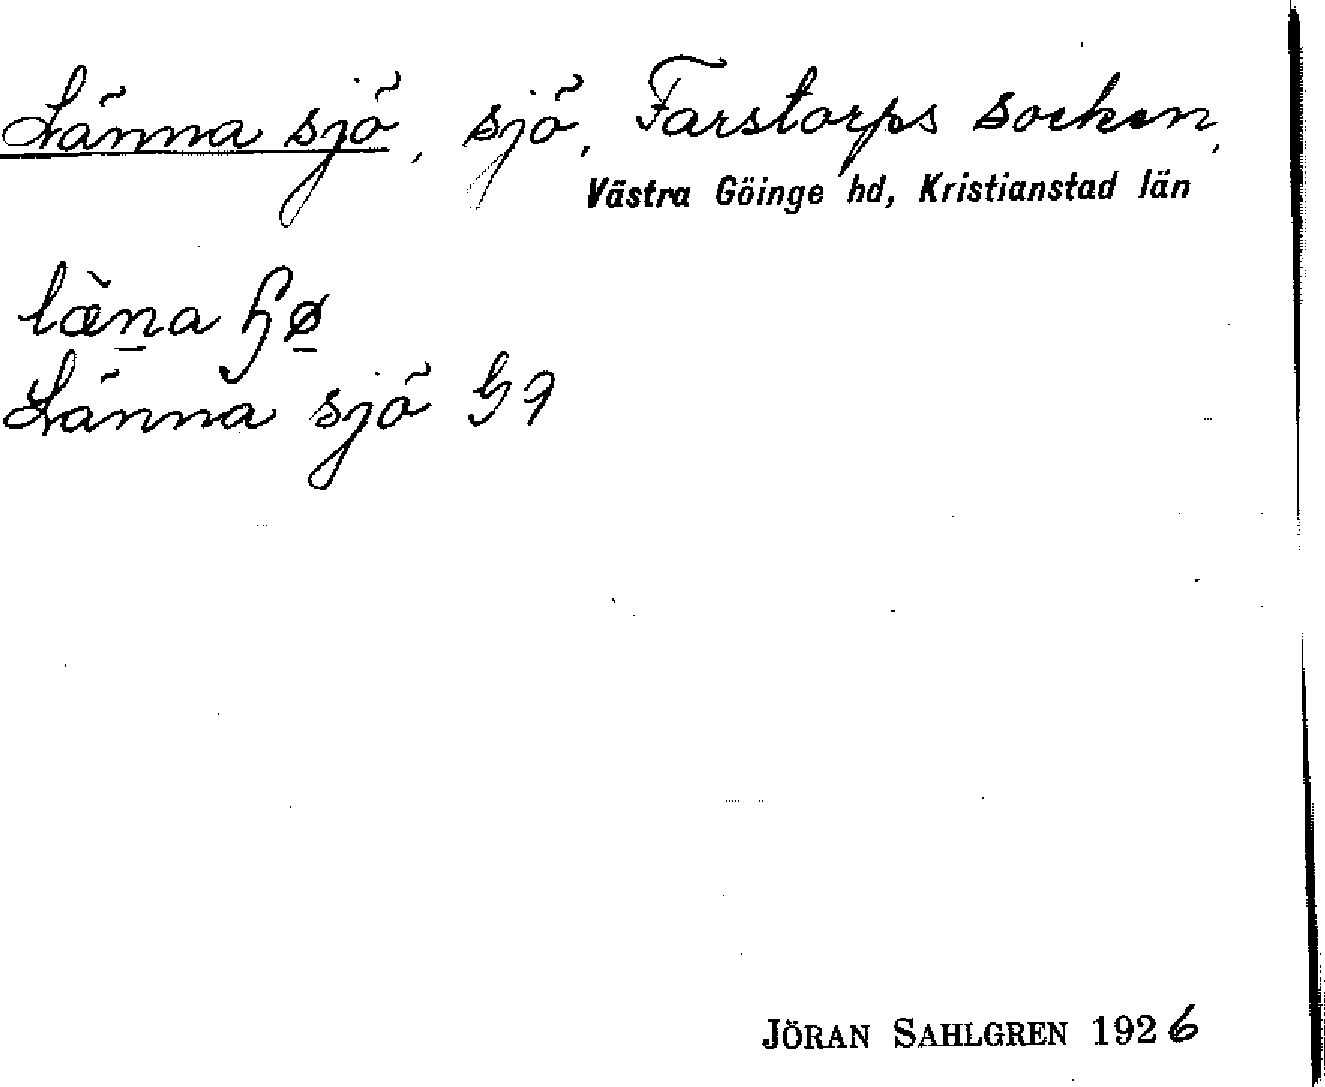 Länna sjö, sjö, Farstorps socken,
Västra Göinge hd, Kristianstad län
læ̀n̲a ɧø̲
Länna sjö
JÖRAN SAHLGREN 1926